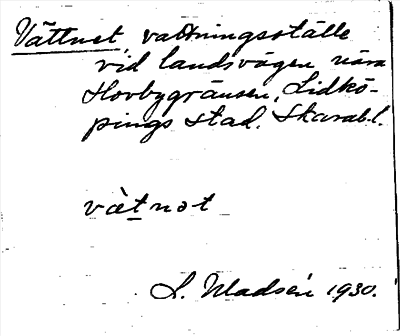 Vättnet, vattningsställe
vid landsvägen nära
Hovbygränsen, Lidkö-
pings stad. Skarab.l.
vàtnot
L. Madsén 1930.